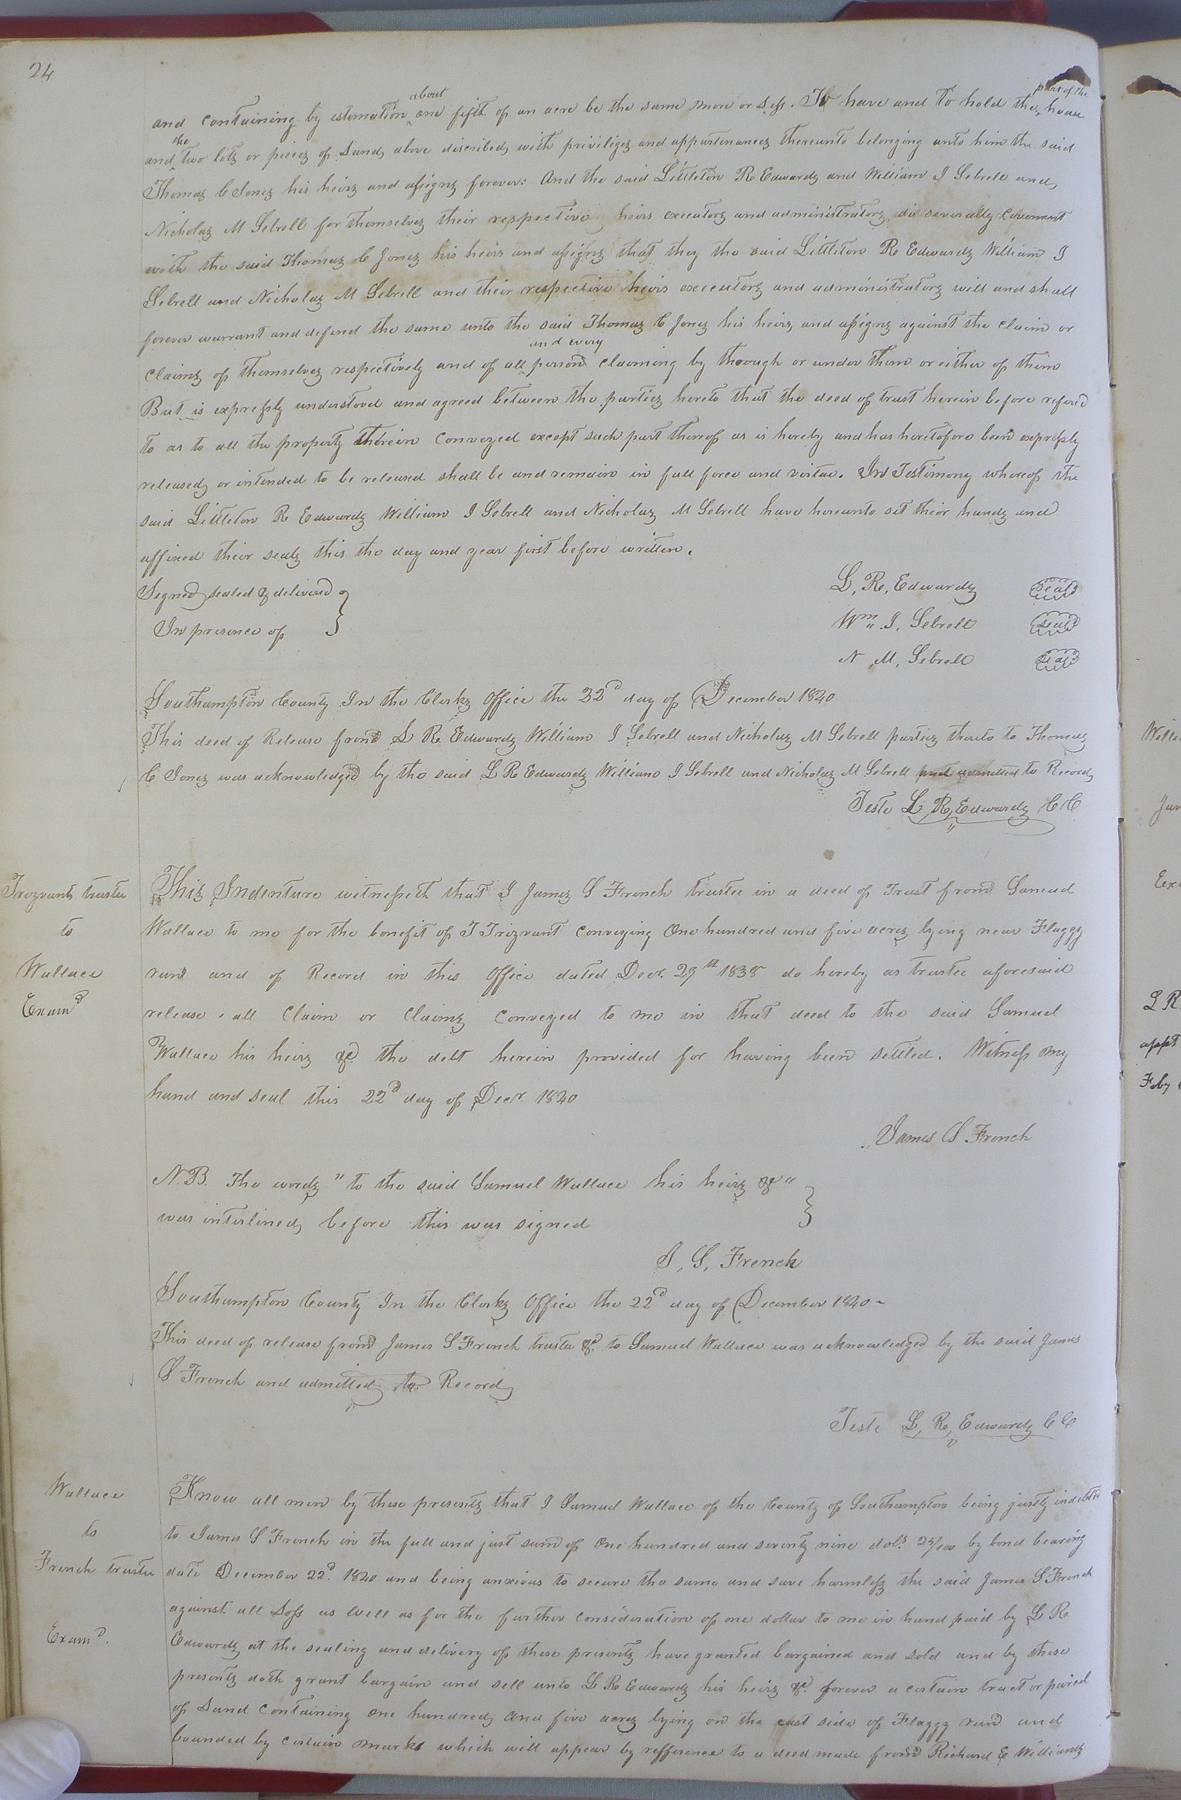 24
and containing by estimation about one fifth of an acre be the same more or Less. To have and to hold the part of the house
and the two lots or pieces of Land, above discribed, with priviliges and appurtenances thereunto belonging unto him the said
Thomas C Jones his heirs and assigns forever: And the said Littleton R Edwards and William J Sebrell and,
Nicholas M Sebrell for themselves their respective heirs executors and administrators do severally Covenant
with the said Thomas C Jones his heirs and assigns that they the said Littleton R Edwards William J
Sebrell and Nicholas M Sebrell and their respective heirs executors and administrators will and shall
forever warrant and defend the same unto the said Thomas C Jones his heirs, and assigns against the claim or
claims of themselves respectively and of all and every person claiming by through or under them or either of them
But is expressly understood and agreed between the parties hereto that the deed of trust herein before refered
to as to all the property therein conveyed except such part thereof as is hereby and has heretofore been expressly
released, or intended to be released shall be and remain in full force and virtue. In Testimony whereof the
said Littleton R Edwards William J Sebrell and Nicholas M Sebrell have hereunto set their hands and
affixed their seals this the day and year first before written.
Signed, sealed & delivered L, R, Edwards Seal
In presence of Wm J, Sebrell Seal
N M, Sebrell Seal
Southampton County In the Clerks Office the 22d day of December 1840
This deed of Release from L R Edwards William J Sebrell and Nicholas M Sebrell parties thereto to Thomas
C Jones was acknowledged by the said L R Edwards William J Sebrell and Nicholas M Sebrell and admitted to Record,
Teste L, R, Edwards C C
Trezvants trustee
to
Wallace
Examd
This Indenture witnesseth that I James S French trustee in a deed of Trust from Samuel
Wallace to me for the benefit of J Trezvant conveying One hundred and five acres lying near Flaggy
run and of Record in this Office dated Decr. 29th 1838 do hereby as trustee aforesaid
release all Claim or Claims conveyed to me in that deed to the said Samuel
Wallace his heirs &c the debt herein provided for having been settled. Witness my
hand and seal this 22d day of Decr. 1840
James S French
N B. The words " to the said Samuel Wallace his heirs &c "
was interlined, before this was signed
J, S, French
Southampton County In the Clerks Office the 22d day of December 1840-
This deed of release from James S French trustee &c to Samuel Wallace was acknowledged by the said James
S French and admitted, to Record,
Teste L, R, Edwards C C
Wallace
to
French trustee
Examd.
Know all men by these presents that I Samuel Wallace of the County of Southampton being justly indebted
to James S French in the full and just sum of One hundred and seventy nine dols. 25/100 by bond bearing
date December 22d. 1840 and being anxious to secure the same and save harmless the said James S French
against all Loss as well as for the further consideration of one dollar to me in hand paid by L R
Edwards at the sealing and delivery of these presents have granted bargained and sold and by these
presents doth grant bargain and sell unto L R Edwards his heirs &c. forever a certain tract or parcel
of Land containing one hundred, and five acres lying on the east side of Flaggy run and
bounded by certain marks which will appear by refference to a deed made from Richard E Williams
L R
appt
Feby